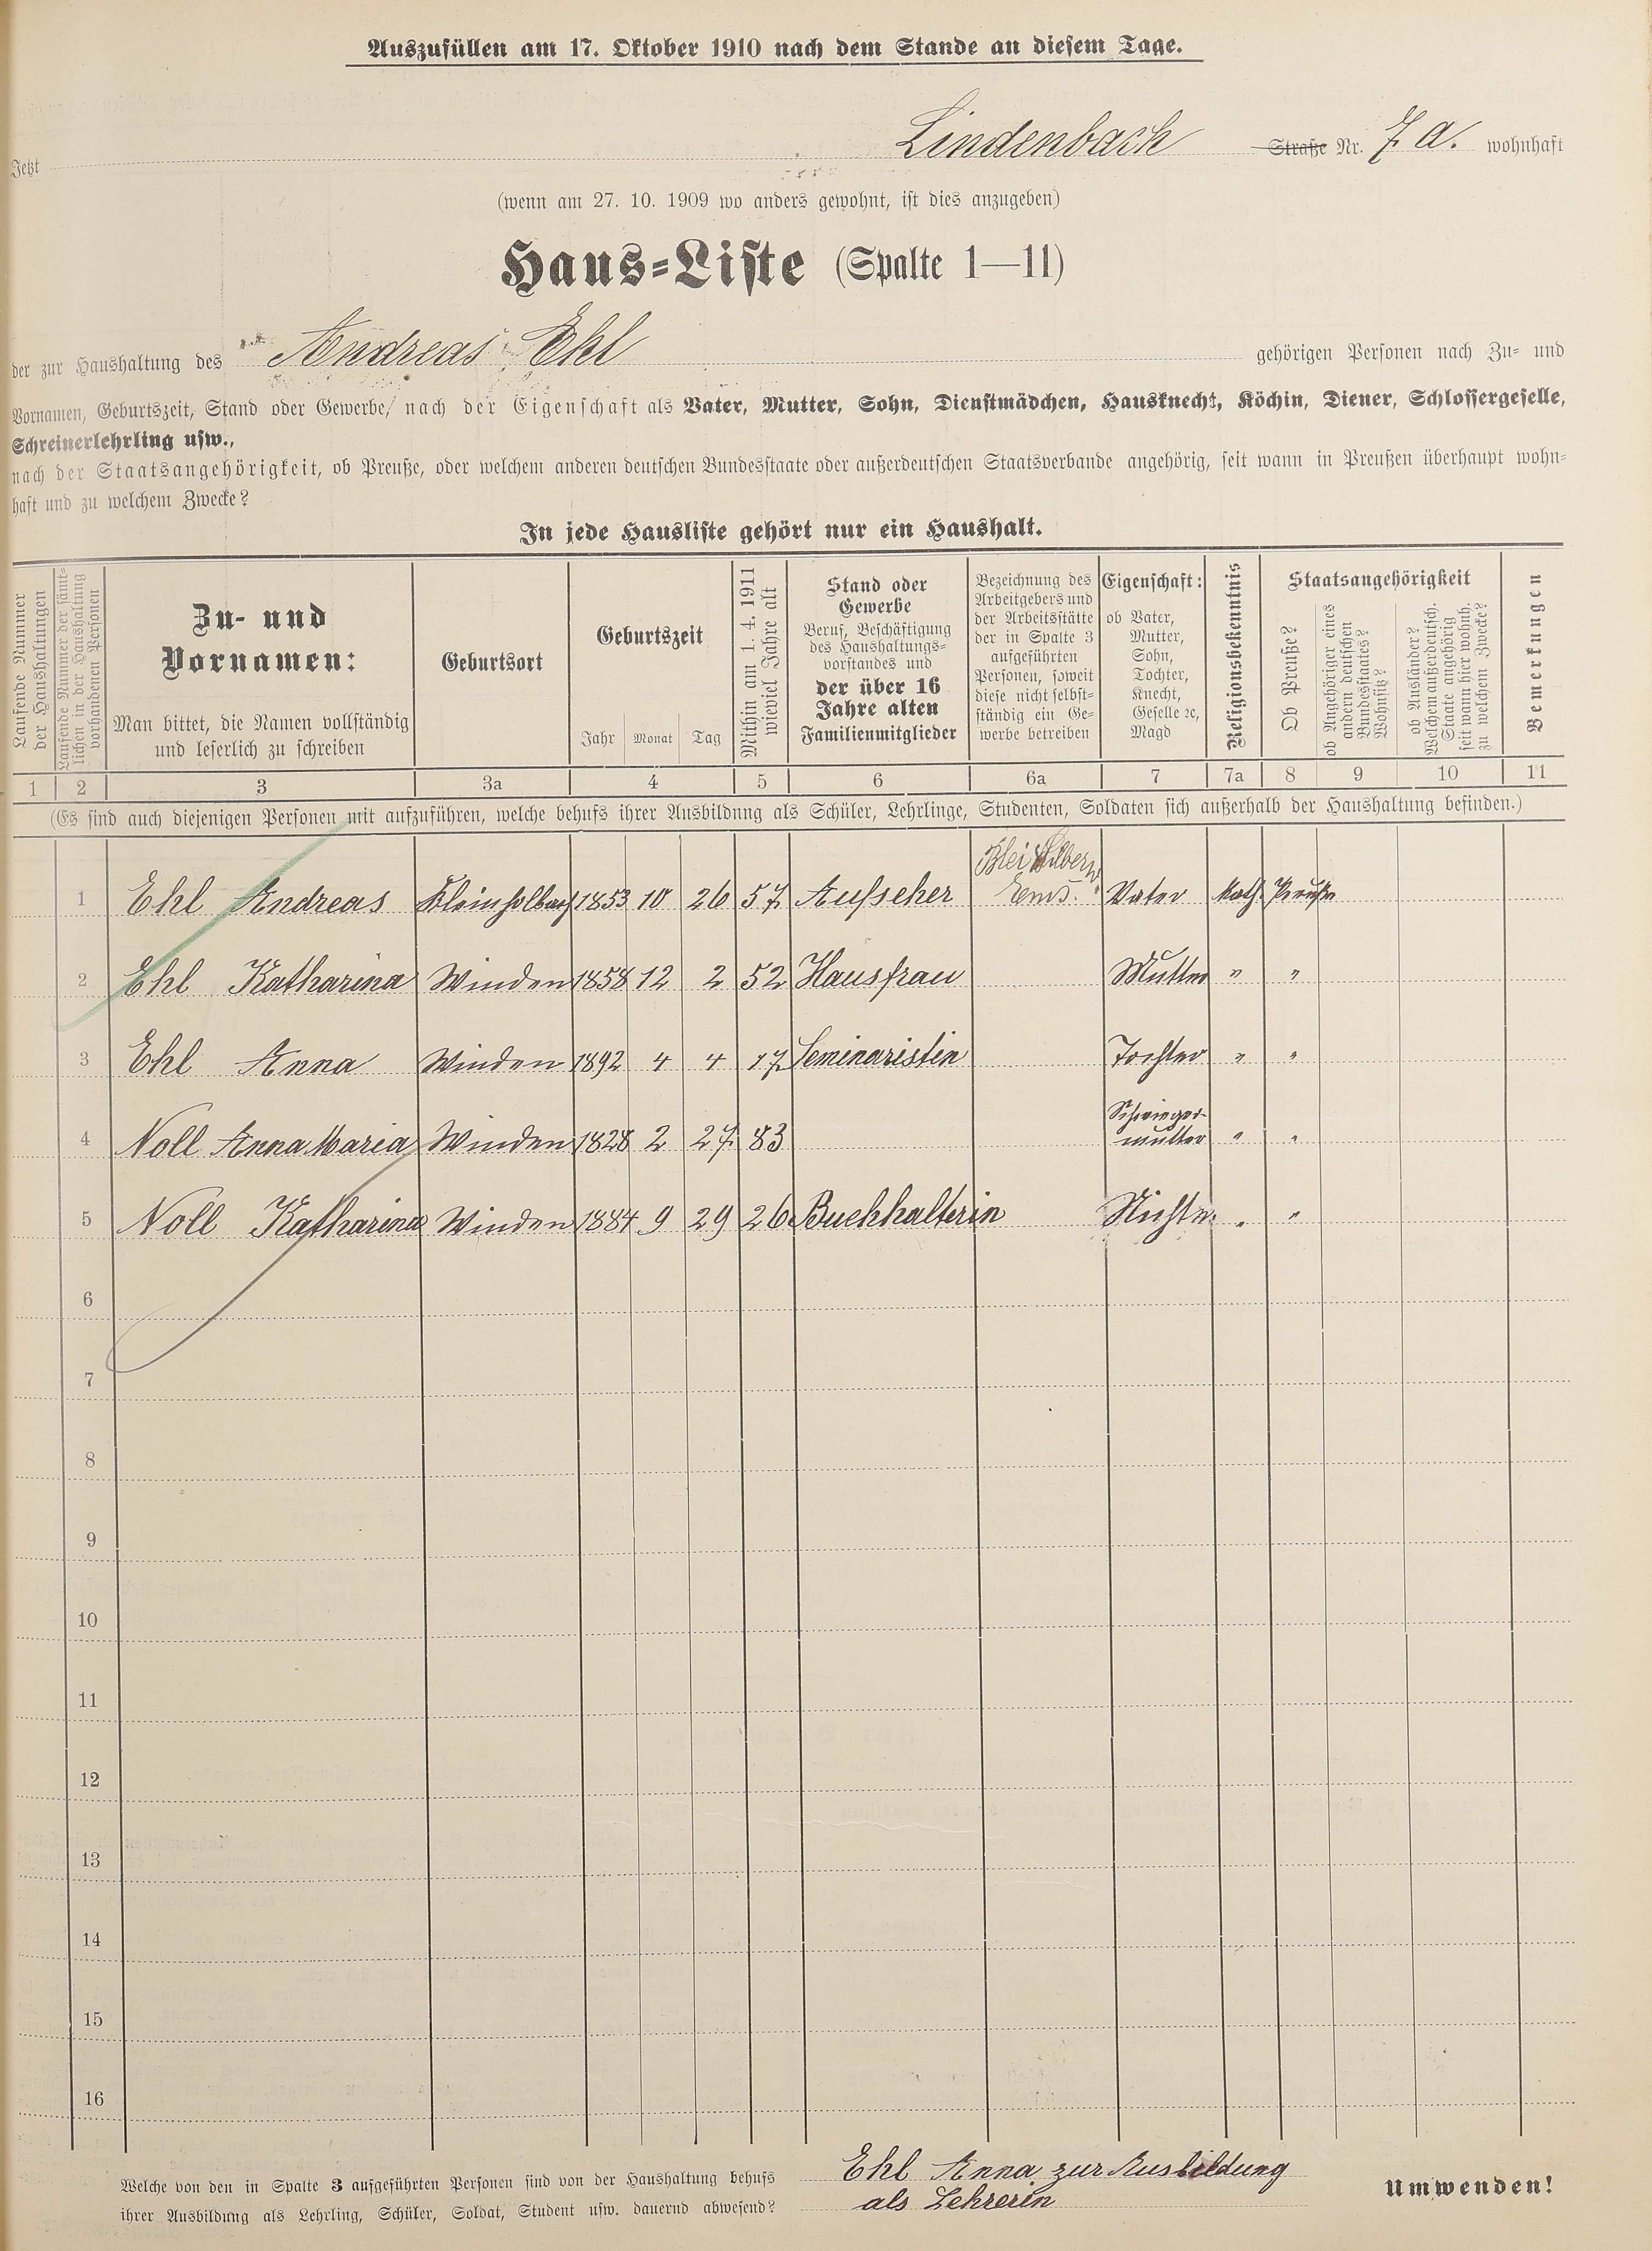 Auszufüllen am 17. Oktober 1910 nach dem Stande an diesem Tage.
Jetzt Lindenbach Straße Nr. 7 a. wohnhaft
(wenn am 27. 10. 1909 wo anders gewohnt, ist dies anzugeben)
Haus-Liste (Spalte 1—11)
der zur Haushaltung des Andreas Ehl gehörigen Personen nach Zu- und
Vornamen, Geburtszeit, Stand oder Gewerbe, nach der Eigenschaft als Vater, Mutter, Sohn, Dienstmädchen, Hausknecht, Köchin, Diener, Schlossergeselle,
Schreinerlehrling usw.,
nach der Staatsangehörigkeit, ob Preuße, oder welchem anderen deutschen Bundesstaate oder außerdeutschen Staatsverbande angehörig, seit wann in Preußen überhaupt wohn-
haft und zu welchem Zwecke?
In jede Hausliste gehört nur ein Haushalt.
Laufende Nummer
der Haushaltungen
Laufende Nummer der sämt-
lichen in der Haushaltung
vorhandenen Personen
Zu- und
Vornamen:
Man bittet, die Namen vollständig
und leserlich zu schreiben
Geburtsort
Geburtszeit
Jahr Monat Tag
Mithin am 1. 4. 1911
wieviel Jahre alt
Stand oder
Gewerbe
Beruf, Beschäftigung
des Haushaltungs-
vorstandes und
der über 16
Jahre alten
Familienmitglieder
Bezeichnung des
Arbeitgebers und
der Arbeitsstätte
der in Spalte 3
aufgeführten
Personen, soweit
diese nicht selbst-
ständig ein Ge-
werbe betreiben
Eigenschaft:
ob Vater,
Mutter,
Sohn,
Tochter,
Knecht,
Geselle ec,
Magd
Religionsbekenntnis
Staatsangehörigkeit
Ob Preuße?
ob Angehöriger eines
andern deutschen
Bundesstaates?
Wohnsitz?
ob Ausländer?
Welchem außerdeutsch.
Staate angehörig
seit wann hier wohnh.
zu welchem Zwecke?
Bemerkungen
1 2 3 3a 4 5 6 6a 7 7a 8 9 10 11
(Es sind auch diejenigen Personen mit aufzuführen, welche behufs ihrer Ausbildung als Schüler, Lehrlinge, Studenten, Soldaten sich außerhalb der Haushaltung befinden.)
1 Ehl Andreas Kleinholbach 1853 10 26 57 Aufseher Blei Silberw. Ems. Vater Kath. Preuße
2 Ehl Katharina Winden 1858 12 2 52 Hausfrau Mutter " "
3 Ehl Anna Winden 1892 4 4 17 Seminaristin Tochter " "
4 Noll Anna Maria Winden 1828 2 27 83 Schwieger-
mutter " "
5 Noll Katharina Winden 1884 9 29 26 Buchhalterin Nichte " "
6
7
8
9
10
11
12
13
14
15
16
Welche von den in Spalte 3 aufgeführten Personen sind von der Haushaltung behufs
ihrer Ausbildung als Lehrling, Schüler, Soldat, Student usw. dauernd abwesend?
Ehl Anna zur Ausbildung
als Lehrerin
Umwenden!